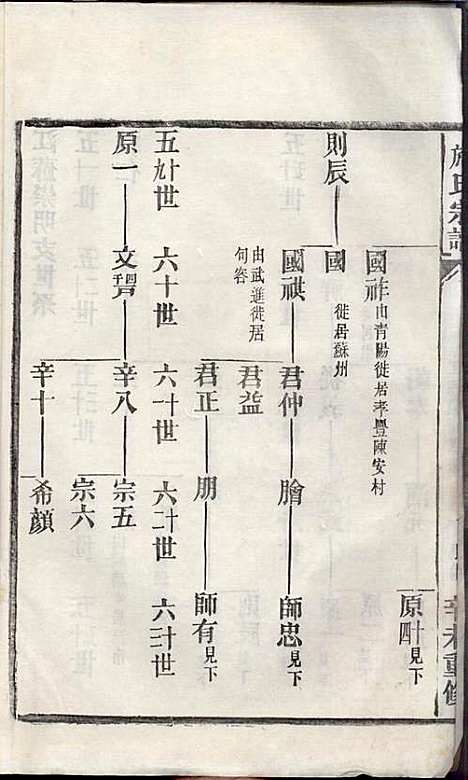 施氏宗譜
辛未重修
原十四見下
國祚由青陽徙居孝豐陳安村
則辰
國
徙居蘇州
國祺
由武進徙居句容
君仲
膾
師忠見下
君益
君正
朋
師有見下
五十九世
六十世
六十一世
六十二世
六十三世
原一
文
辛八
宗五
宗六
辛十
希顔